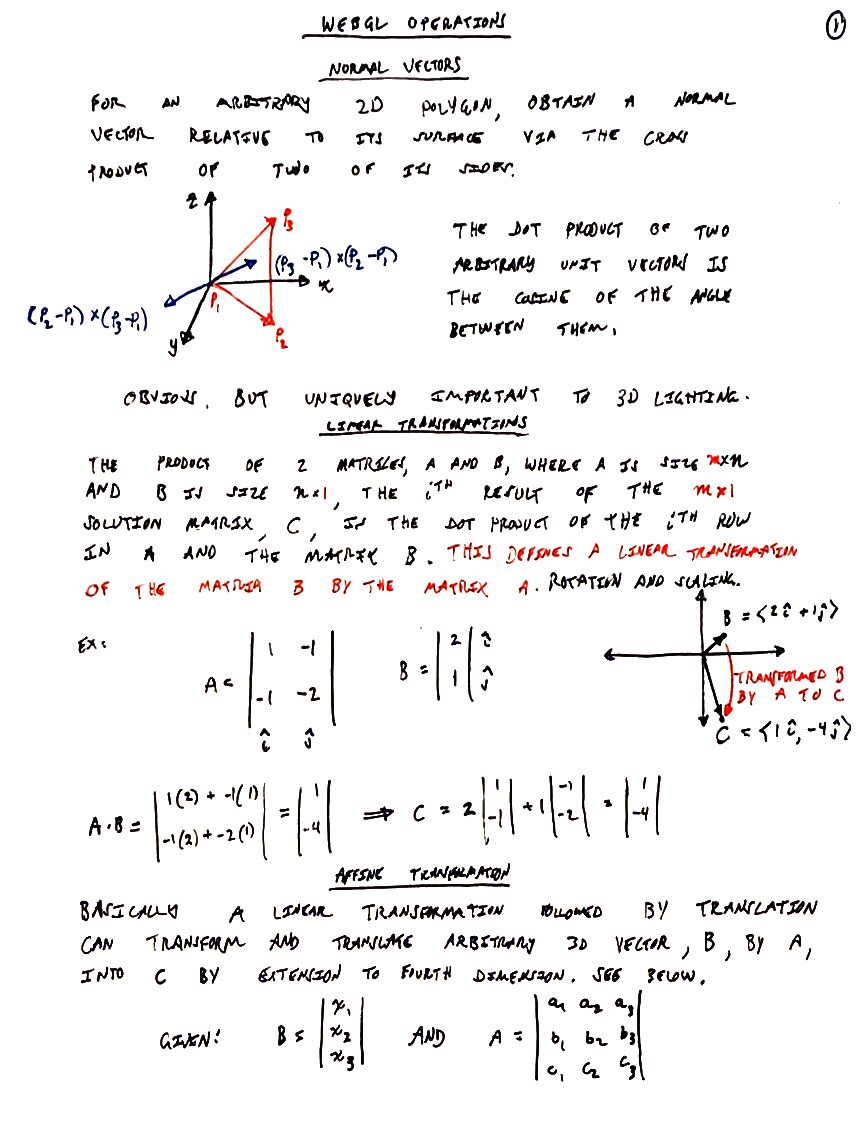 WEBGL OPERATIONS
1
NORMAL VECTORS
FOR AN ARBITRARY 2D POLYGON, OBTAIN A NORMAL
VECTOR RELATIVE TO ITS SURFACE VIA THE CROSS
PRODUCT OF TWO OF ITS SIDES.
z
P₃
(P₃-P₁)×(P₂-P₁)
x
P₁
(P₂-P₁)×(P₃-P₁)
P₂
y
THE DOT PRODUCT OF TWO
ARBITRARY UNIT VECTORS IS
THE COSINE OF THE ANGLE
BETWEEN THEM.
OBVIOUS, BUT UNIQUELY IMPORTANT TO 3D LIGHTING.
LINEAR TRANSFORMATIONS
THE PRODUCT OF 2 MATRICES, A AND B, WHERE A IS SIZE m×n
AND B IS SIZE n×1, THE iTH RESULT OF THE m×1
SOLUTION MATRIX, C, IS THE DOT PRODUCT OF THE iTH ROW
IN A AND THE MATRIX B. THIS DEFINES A LINEAR TRANSFORMATION
OF THE MATRIX B BY THE MATRIX A. ROTATION AND SCALING.
EX:
A = |1 -1|
|-1 -2|
î ĵ
B = |2| î
|1| ĵ
B = <2î + 1ĵ>
TRANSFORMED B
BY A TO C
C = <1î, -4ĵ>
A·B = |1(2) + -1(1)| = |1| ⟹ C = 2|1| + 1|-1| = |1|
|-1(2) + -2(1)| |-4| |-1| |-2| |-4|
AFFINE TRANSFORMATION
BASICALLY A LINEAR TRANSFORMATION FOLLOWED BY TRANSLATION
CAN TRANSFORM AND TRANSLATE ARBITRARY 3D VECTOR, B, BY A,
INTO C BY EXTENSION TO FOURTH DIMENSION. SEE BELOW.
GIVEN: B = |x₁| AND A = |a₁ a₂ a₃|
|x₂| |b₁ b₂ b₃|
|x₃| |c₁ c₂ c₃|